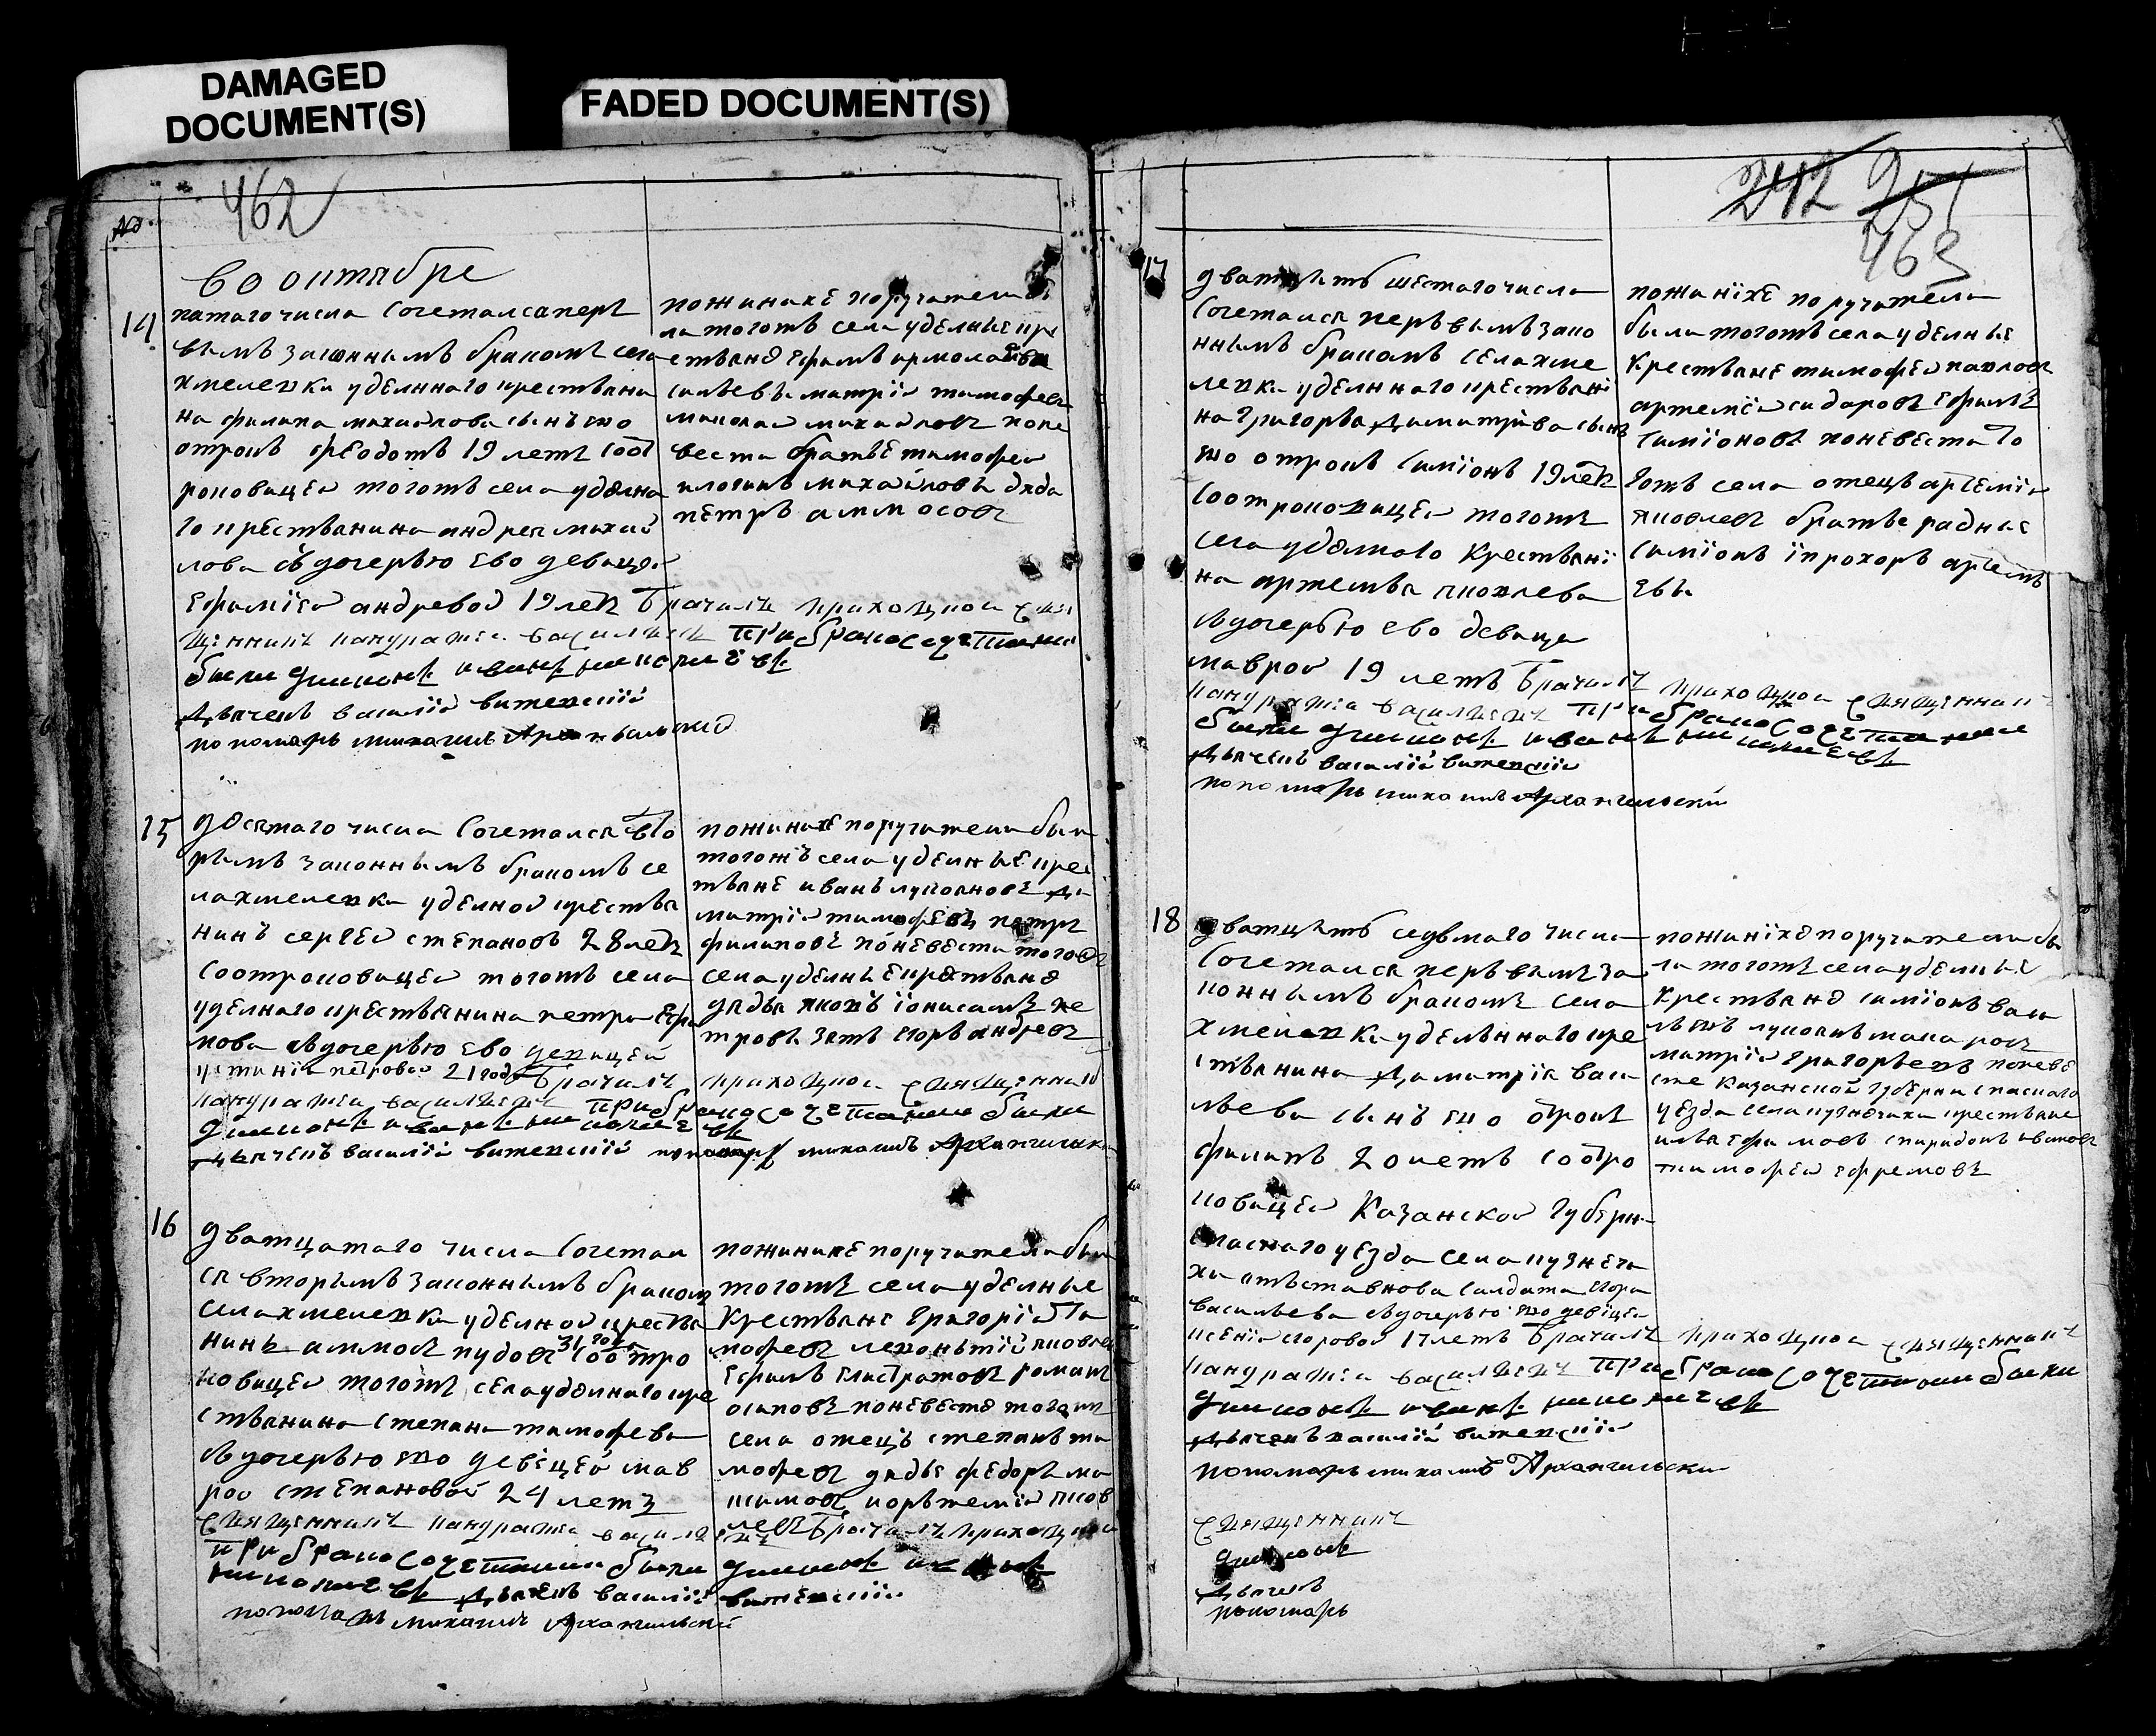 DAMAGED
DOCUMENT(S)
FADED DOCUMENT(S)
№
462
во октябре
14
пятаго числа сочетался пер
вымъ законнымъ бракомъ села
хмелевки уделнаго крестьяни
на филипа михайлова сынъ ево
отрокъ феодотъ 19 летъ сот
роковицеи тогожъ села уделна
го крестьянина андрея михаи
лова сдочерью ево девицеи
ефимиеи андревой 19 летъ Брачалъ приходской свя
щенникъ василиевъ при бракосочетании
были диаконъ иванъ
дьячекъ василий витевский
пономарь михаилъ Архангильский
поженихе поручители бы
ли тогожъ села уделные кре
стьяне ефимъ
тимофеевъ
николай михайловъ поне
весте братье тимофеи
михайловы дядя
петръ аммосовъ
15
десятаго числа сочетался вто
рымъ законнымъ бракомъ се
ла хмелевки уделной крестья
нинъ сергеи степановъ 28 летъ
соотроковицеи тогожъ села
уделнаго крестьянина петра
сдочерью ево девицеи
петровой 21 года Брачалъ приходской священникъ
василиевъ при бракосочетании были
диаконъ иванъ
дьячекъ василий витевский пономарь михаилъ Архангильски
поженихе поручители были
тогожъ села уделные крес
тьяне иванъ лукояновъ ди
митрий тимофеевъ петръ
филиповъ поневесте тогожъ
села уделные крестьяне
дядья яковъ пе
тровы зять егоръ андреевъ
16
дватцатаго числа сочетал
ся вторымъ законнымъ бракомъ
села хмелевки уделной крестья
нинъ аммосъ пудовъ 31 года соотро
ковицеи тогожъ села уделнаго кре
стьянина степана тимофева
сдочерью ево девицеи мав
рой степановой 24 летъ
священникъ василиевъ
при бракосочетании были диаконъ
дьячекъ василий витевский
пономарь михаилъ Архангильский
поженихе поручители были
тогожъ села уделные
крестьяне григорий ти
мофеевъ леонътий яковлевъ
ефимъ романъ
осиповъ поневесте тогожъ
села отецъ степанъ ти
мофеевъ дядье федоръ ма
ксимовъ артемий яков
левъ Брачалъ приходской
242 251
463
17
дватцать шестаго числа
сочетался первымъ зако
ннымъ бракомъ села хме
левки уделнаго крестьяни
на григорья димитрива сынъ
ево отрокъ симионъ 19 летъ
соотроковицеи тогожъ
села уделнаго крестьяни
на артемья яковлева
сдочерью ево девицеи
маврой 19 летъ Брачалъ приходской священникъ
василиевъ при бракосочетании
были диаконъ иванъ
дьячекъ василий витевский
пономарь михаилъ Архангильский
поженихе поручители
были тогожъ села уделные
крестьяне тимофеи павловъ
артемей сидоровъ ефимъ
симионовъ поневесте то
гожъ села отецъ артемий
яковлевъ братье радные
симионъ и прохоръ артемь
евы
18
дватцать седьмаго числа
сочетался первымъ за
коннымъ бракомъ села
хмелевки уделнаго кре
стьянина димитрия васи
льева сынъ ево отрокъ
филипъ 20 летъ соотро
ковицеи Казанской губерни
спаскаго уезда села кузнеча
хи отставнова салдата егора
васильева сдочерью ево девицеи
егоровой 17 летъ Брачалъ приходской священникъ
василиевъ при бракосочетании были
диаконъ иванъ
дьячекъ василий витевский
пономарь михаилъ Архангильски
поженихе поручители бы
ли тогожъ села уделные
крестьяне симионъ васи
льевъ лукоянъ макаровъ
митрий григорьевъ поневе
сте Казанской губерни спаскаго
уезда села кузнечихи крестьяне
илья ефимовъ спиридонъ ивановъ
тимофеи ефремовъ
священникъ
диаконъ
дьячекъ
пономарь